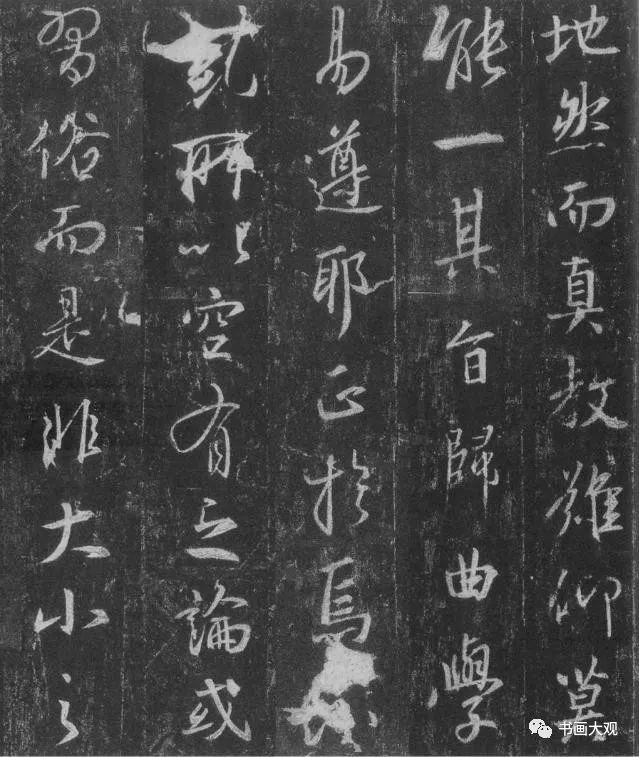 地然而真教難仰莫
能一其旨歸曲學
易遵耶正於焉
所以空有之論或
習俗而是非大小之
书画大观